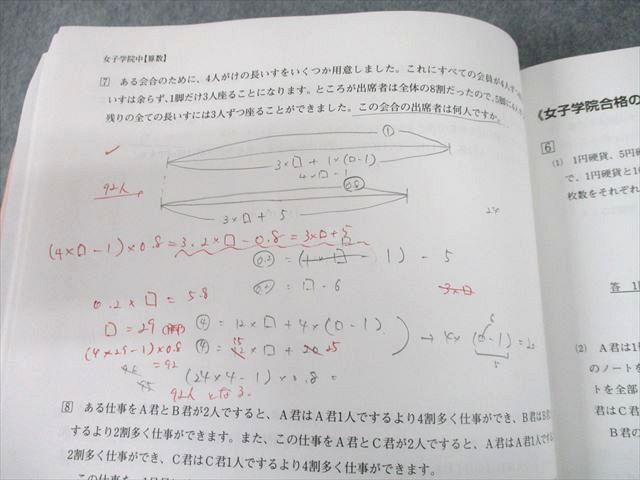 女子学院中【算数】
7 ある会合のために、4人がけの長いすをいくつか用意しました。これにすべての会員が4人ず
いすは余らず、1脚だけ3人座ることになります。ところが出席者は全体の8割だったので、5脚に4人
残りの全ての長いすには3人ずつ座ることができました。この会合の出席者は何人ですか。
①
3×□+1×(□-1)
4×□-1
92人
0.8
3×□+5
24
(4×□-1)×0.8=3.2×□-0.8=3×□+5
1) - 5
= □ - 6
3×□
0.2×□=5.8
□=29
④ = 12×□+4×(□-1)
(4×29-1)×0.8
=92
④ =
15
×□+
25
→ 4×(□-1)=20
6
5
45
(24×4-1)×0.8=
92人となる.
8 ある仕事をA君とB君が2人ですると、A君はA君1人でするより4割多く仕事ができ、B君はB君
するより2割多く仕事ができます。また、この仕事をA君とC君が2人ですると、A君はA君1人で
2割多く仕事ができ、C君はC君1人でするより4割多く仕事ができます。
《女子学院合格の
6
(1) 1円硬貨、5円硬
で、1円硬貨と1
枚数をそれぞれ
答 1
(2) A君は1
のノートを
トを全部
君はC君
B君の